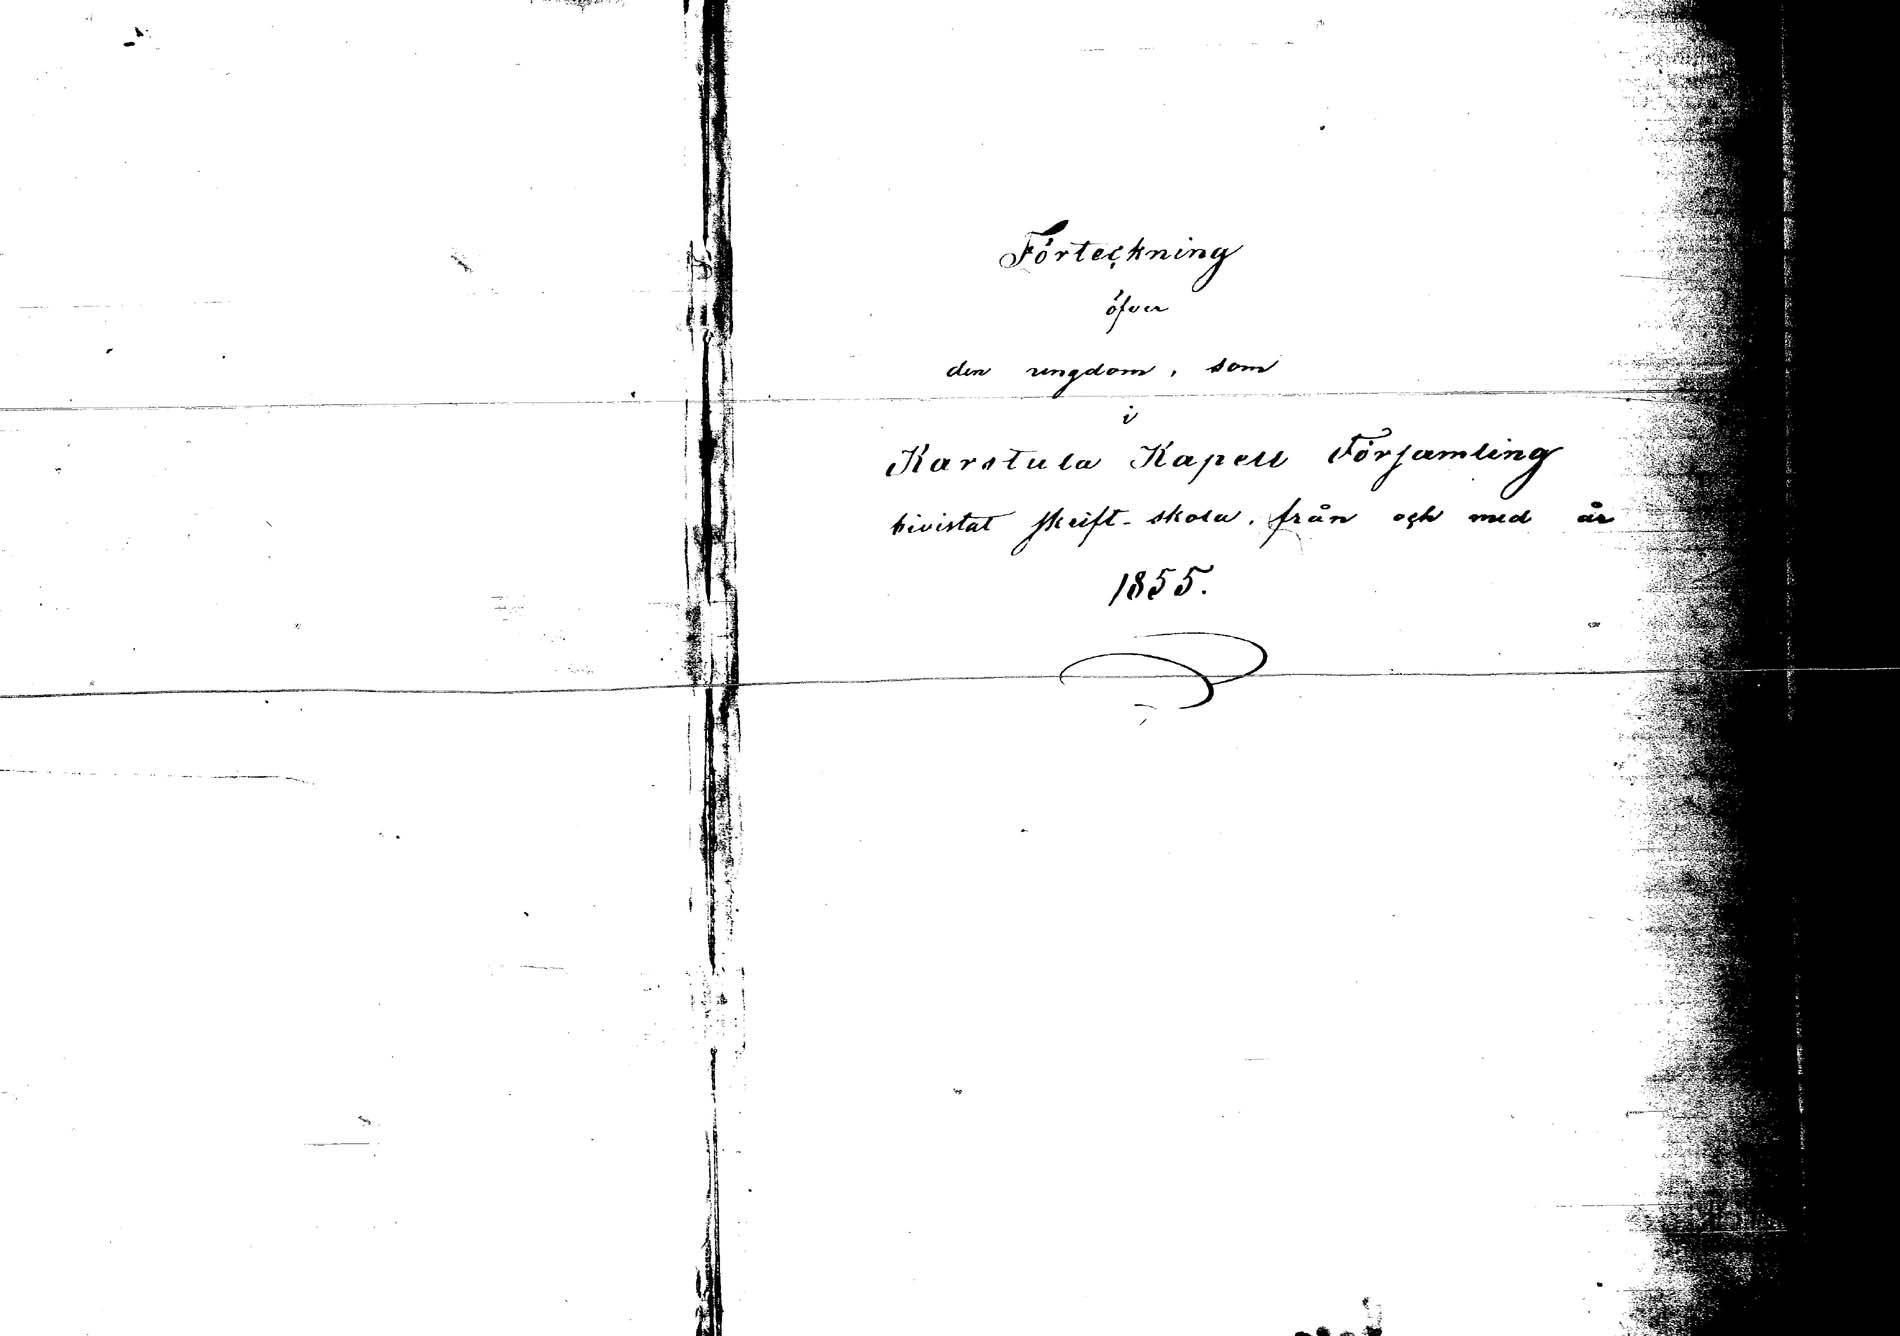 Förteckning
öfver
den ungdom, som
i
Karstula Kapell Församling
bivistat skrift-skola, från och med år
1855.